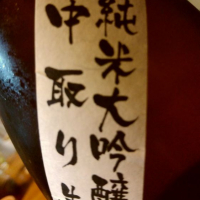 純米大吟醸
中取り